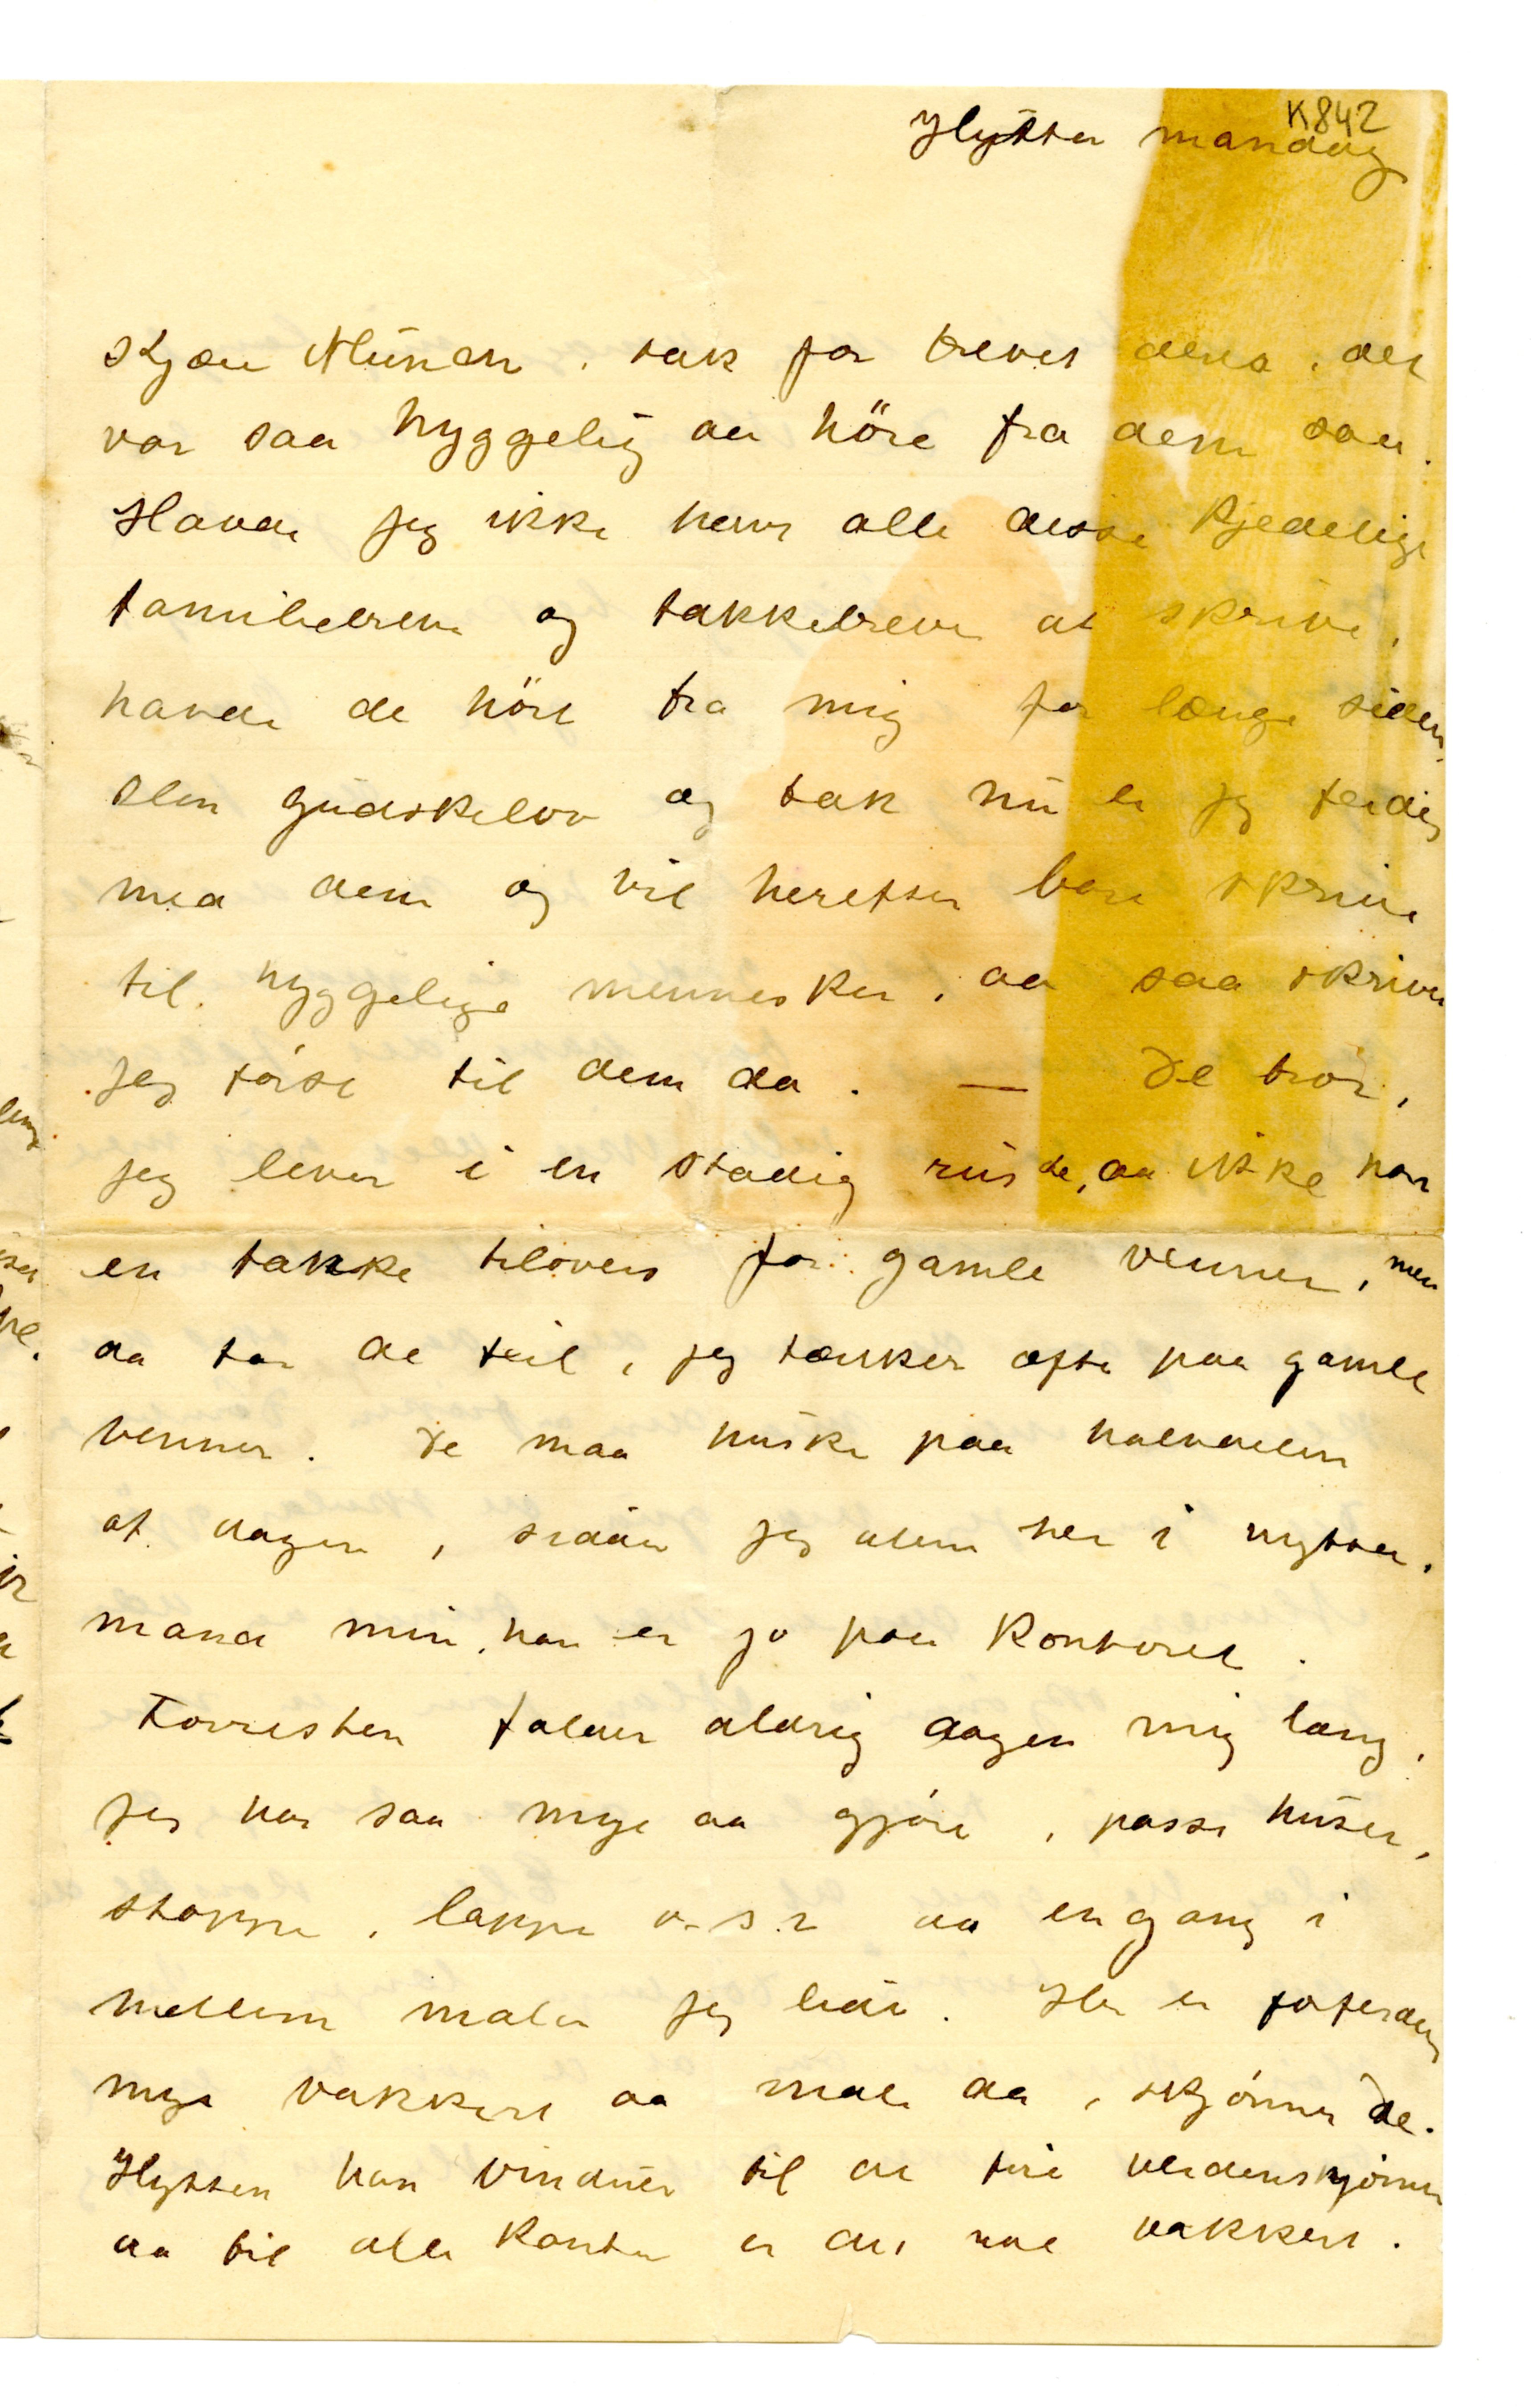 K842
Hytten mandag
Kjære Munch, tak for brevet deres, det
var saa hyggelig aa höre fra dem saa.
Havde jeg ikke havt alle disse kjedelige
familiebreve og takkebreve at skrive,
havde de hört fra mig for længe siden,
Men gudskelov og tak nu er jeg ferdig
med dem og vil herefter bare skrive
til hyggelige mennesker, aa saa skriver
jeg först til dem da. — De tror,
jeg lever i en stadig rus de, aa ikke har
en tanke tilovers for gamle venner, men
da tar de feil, jeg tænker ofte paa gamle
venner. De maa huske paa halvdelen
af dagen, sidder jeg alene her i hytten,
mand min, han er jo paa Kontoret.
Forresten falder aldrig dagen mig lang,
jeg har saa mye aa gjöre, passe huset,
stoppe, lappe o.s.v aa en gang i
mellem maler jeg lidt. Her er forferdelig
mye vakkert aa male da, skjönner De.
Hytten har vinduer til de fire verdenshjörner
aa til alle Kanter er det like vakkert.